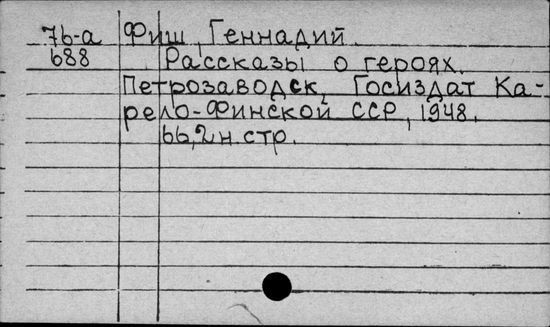 76-а Фиш, Геннадий.
688 Рассказы о героях.
Петрозаводск, Госиздат Ка-
рело-Финской ССР, 1948.
66,2н.стр.